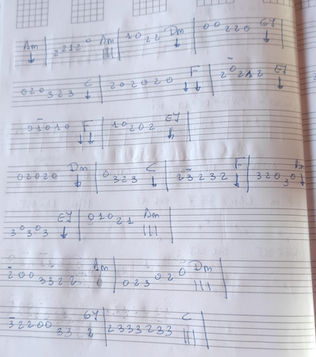 Am 3 2 1 2 0 Am 1 0 2 2 Dm 0 0 2 2 0 E7
0 2 0 3 2 3 C 2 0 2 0 2 0 F 2 0 2 1 2 E7
0 1 0 1 0 F 1 0 2 0 2 E7
0 2 0 2 0 Dm 0 3 2 3 C 2 3 2 3 2 F 3 2 0 3 0
3 0 3 0 3 E7 0 1 0 2 1 Am
2 0 0 3 3 2 2 Am 0 2 3 0 2 0 Dm
3 2 2 0 0 3 3 G7 2 3 3 3 2 3 3 C